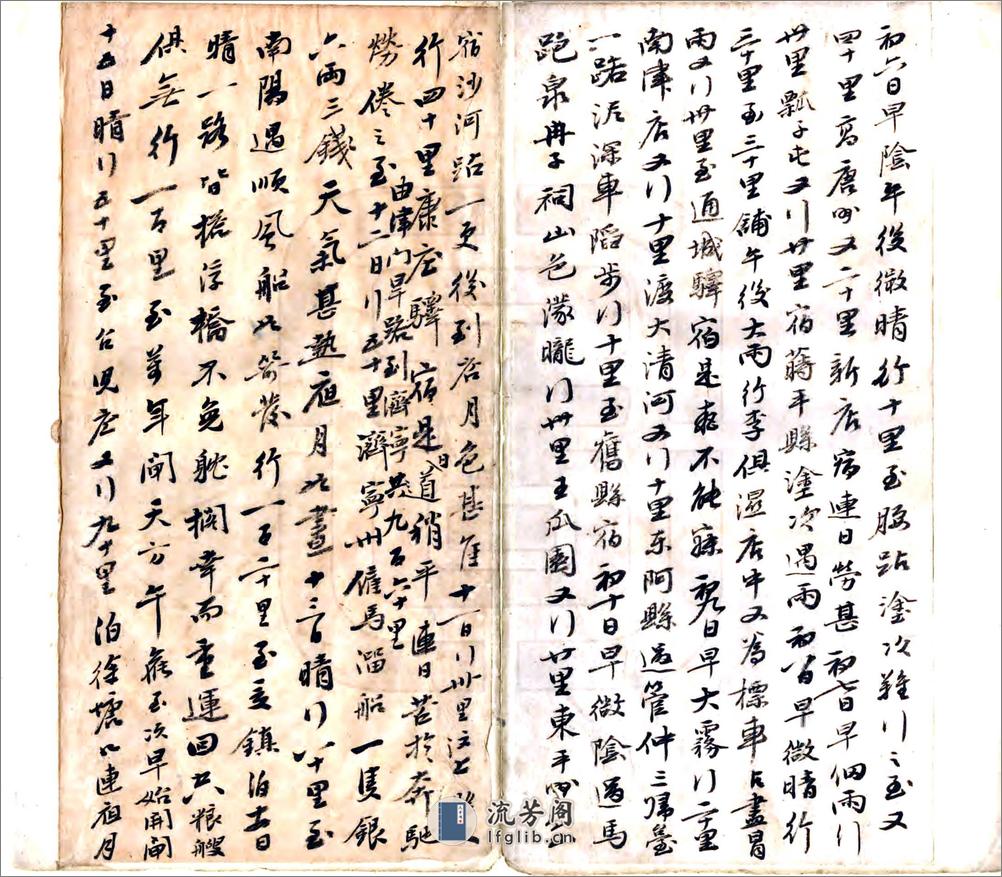 初六日早陰午後微晴行十里至腰站塗次難行之至又
四十里高唐州又二十里新店病連日勞甚初七日早佃雨行
卅里瓢子屯又行卅里宿蒋平縣塗次遇雨初八日早微晴行
三十里至三十里舖午後大雨行李俱濕店中又為標車占盡冒
雨又行卅里至通城驛宿是夜不能寐初九日早大霧行二十里
南津店又行十里渡大清河又行十里东阿縣過管仲三歸臺
一路泥深車陷步行十里至舊縣宿初十日早微陰過馬
跑泉冉子祠山色濛朧行卅里王瓜園又行廿里東平州
宿沙河站一更後到店月色甚佳十一日行卅里汶上
行四十里康庄驛宿是日道稍平連日苦於奔馳
勞倦之至十二日行五十里濟寧州僱馬溜船一隻銀
由津門旱路到濟寧共九百六十里
六兩三錢天氣甚熱夜月如晝十三日晴行八十里至
南陽遇順風船如箭發行一百二十里至夏鎮泊十四日
晴一路皆搭浮橋不免耽擱幸而重運回六粮艘
俱無行一百里至萬年閘天方午飯至次早始開閘
十五日晴行五十里至台兒庄又行九十里泊徐塘口連夜月
流芳阁
lfglib.com